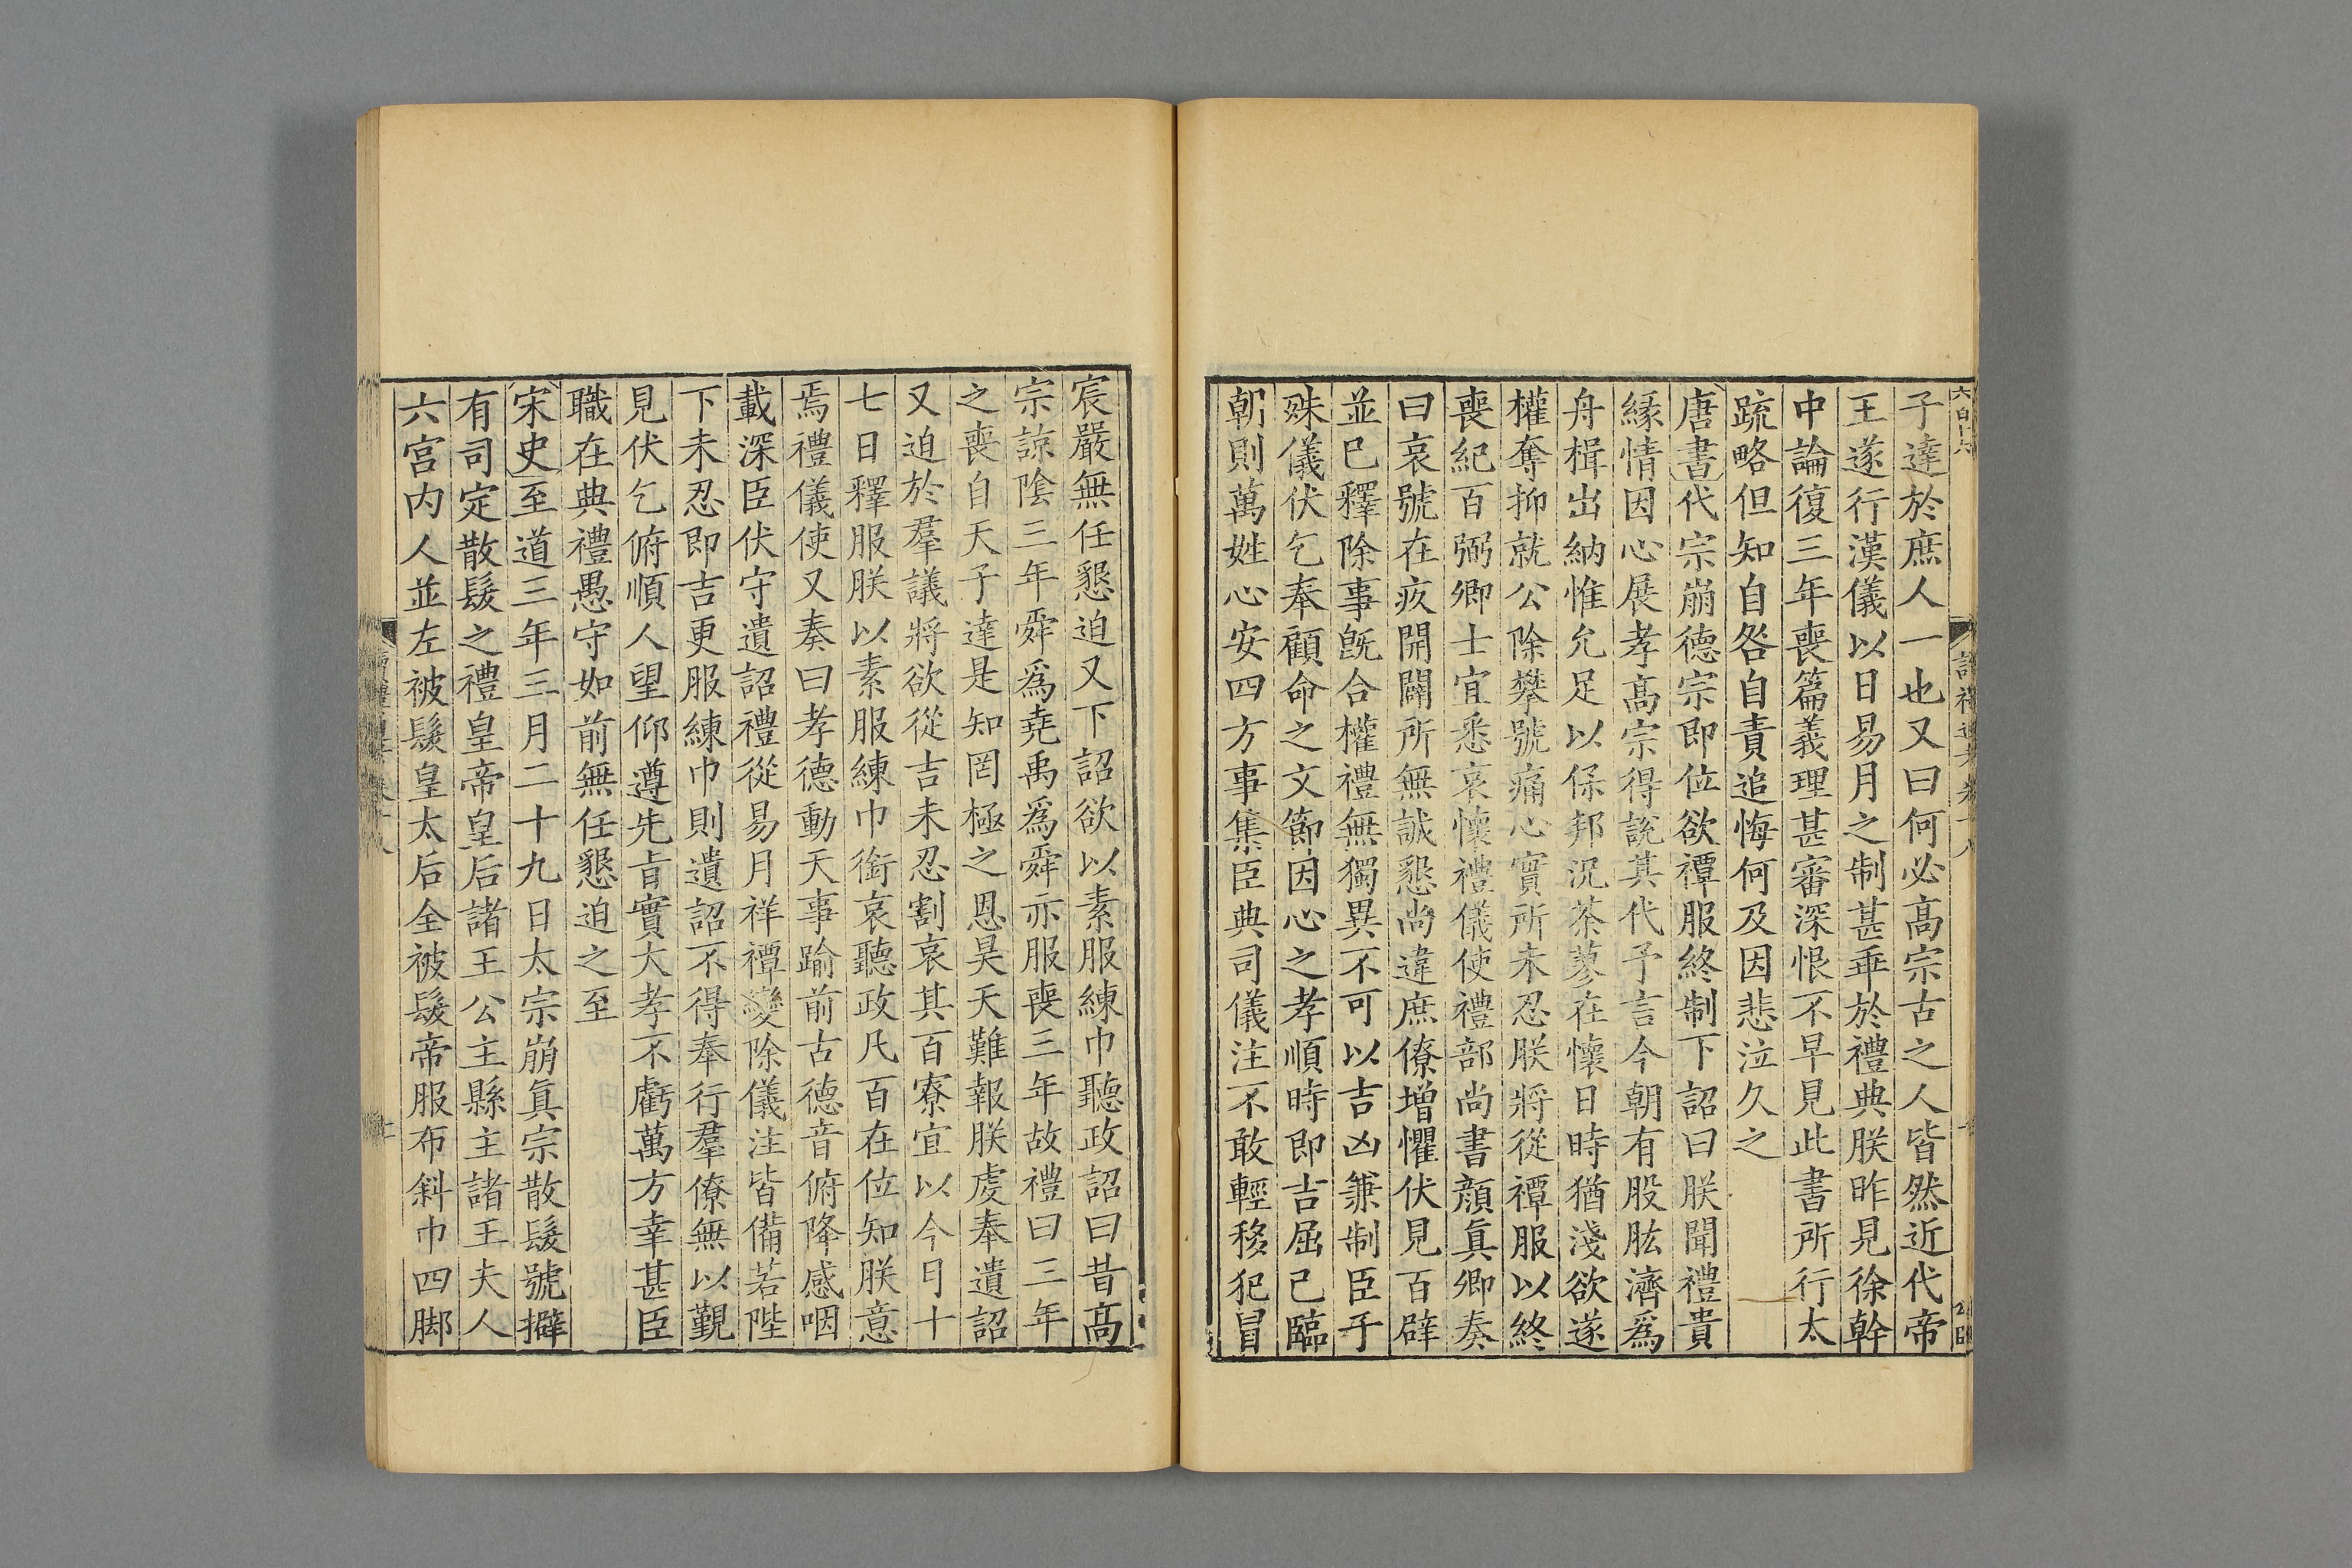 子達於庶人一也又曰何必高宗古之人皆然近代帝
王遂行漢儀以日易月之制甚乖於禮典朕昨見徐幹
中論復三年喪篇義理甚審深恨不早見此書所行太
疏略但知自咎自責追悔何及因悲泣久之
唐書代宗崩德宗即位欲禫服終制下詔曰朕聞禮貴
緣情因心展孝高宗得說其代予言今朝有股肱濟爲
舟楫出納惟允足以保邦況荼蓼在懷日時猶淺欲遂
權奪抑就公除攀號痛心實所未忍朕將從禫服以終
喪紀百弼卿士宜悉哀懷禮儀使禮部尚書顏眞卿奏
曰哀號在疚開闢所無誠懇尚違庶僚增懼伏見百辟
並已釋除事旣合權禮無獨異不可以吉凶兼制臣子
殊儀伏乞奉顧命之文節因心之孝順時即吉屈己臨
朝則萬姓心安四方事集臣典司儀注不敢輕移犯冒
宸嚴無任懇迫又下詔欲以素服練巾聽政詔曰昔高
宗諒陰三年舜爲堯禹爲舜亦服喪三年故禮曰三年
之喪自天子達是知罔極之恩昊天難報朕虔奉遺詔
又迫於羣議將欲從吉未忍割哀其百寮宜以今月十
七日釋服朕以素服練巾銜哀聽政凡百在位知朕意
焉禮儀使又奏曰孝德動天事踰前古德音俯降感咽
載深臣伏守遺詔禮從易月祥禫變除儀注皆備若陛
下未忍即吉更服練巾則遺詔不得奉行羣僚無以覲
見伏乞俯順人望仰遵先旨實大孝不虧萬方幸甚臣
職在典禮愚守如前無任懇迫之至
宋史至道三年三月二十九日太宗崩眞宗散髮號擗
有司定散髮之禮皇帝皇后諸王公主縣主諸王夫人
六宮内人並左被髮皇太后全被髮帝服布斜巾四脚